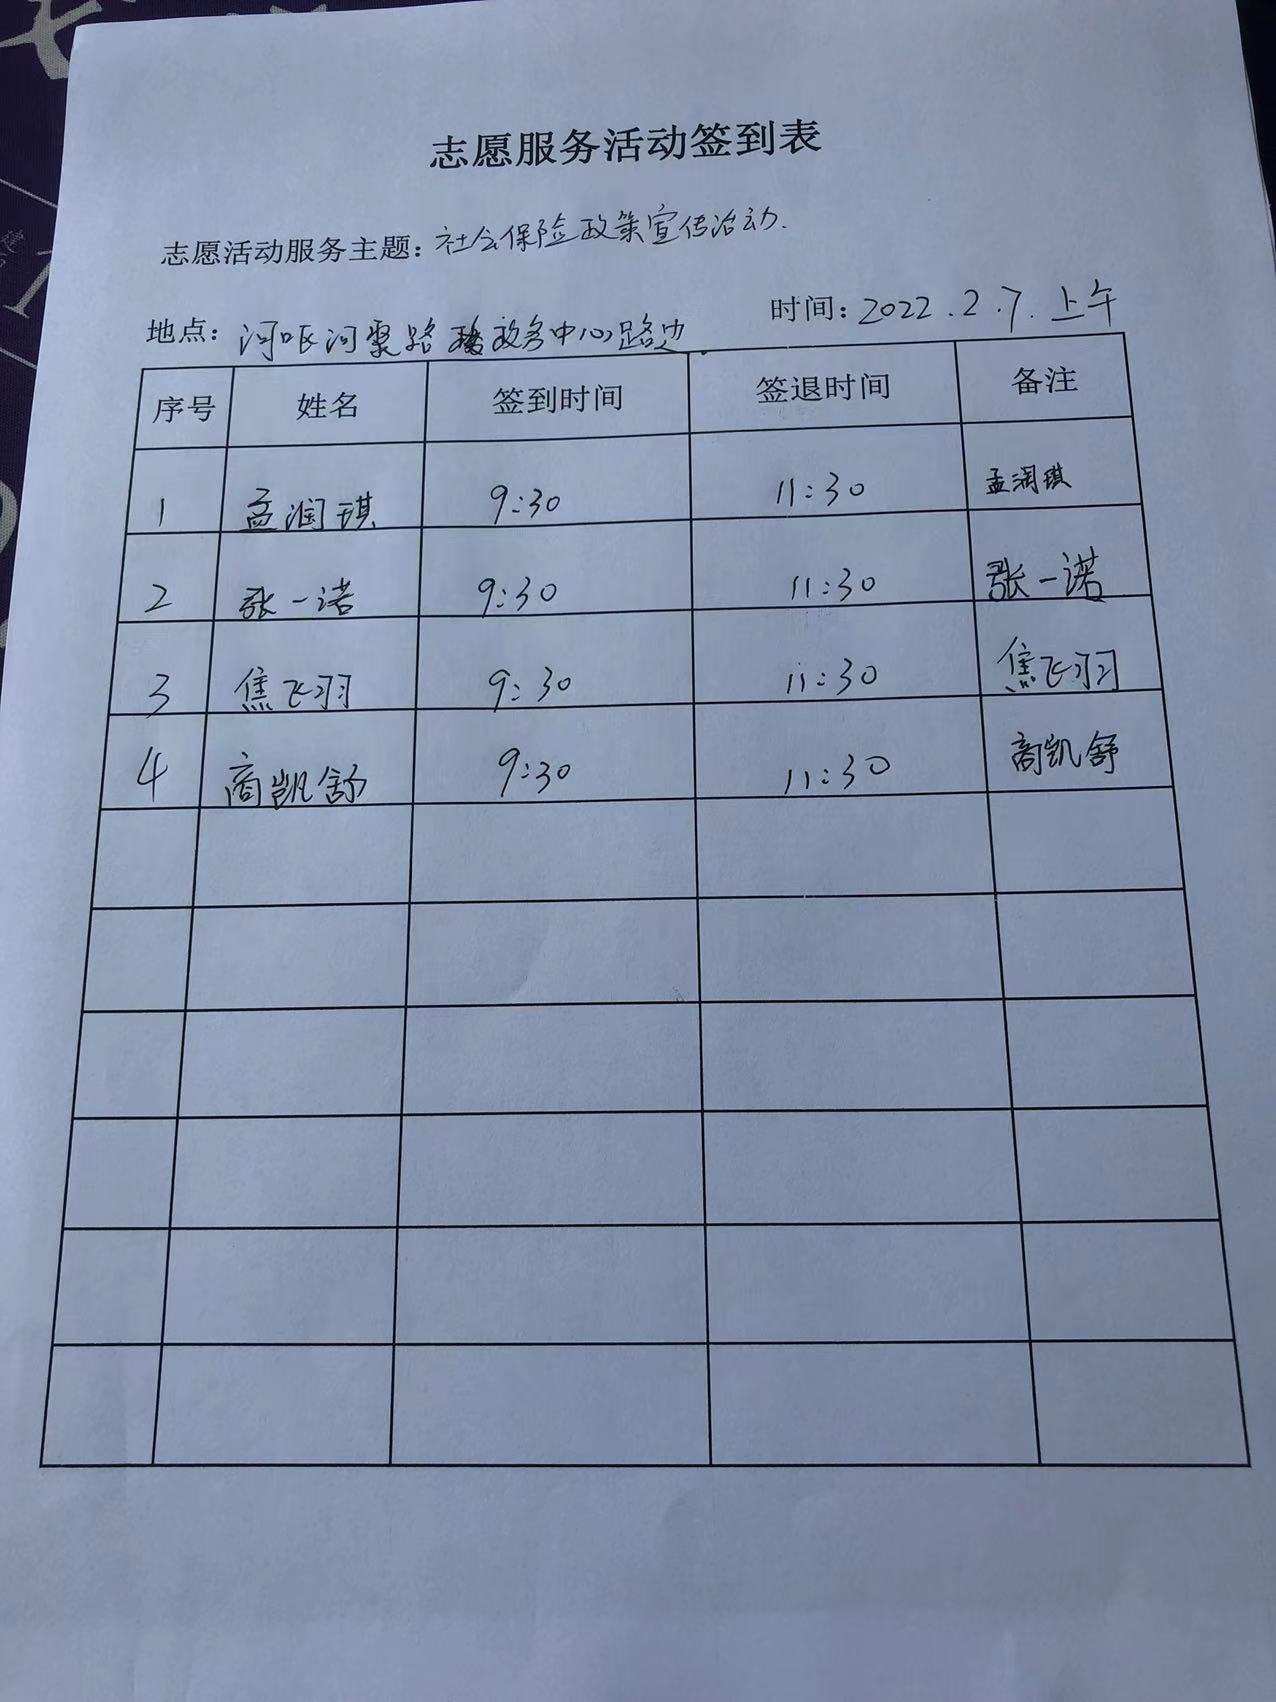 志愿服务活动签到表
志愿活动服务主题：社会保险政策宣传活动.
时间：2022.2.7.上午
地点：河口区河聚路政务中心路边.
序号 姓名 签到时间 签退时间 备注
1 孟润琪 9:30 11:30 孟润琪
2 张一诺 9:30 11:30 张一诺
3 焦飞羽 9:30 11:30 焦飞羽
4 商凯舒 9:30 11:30 商凯舒